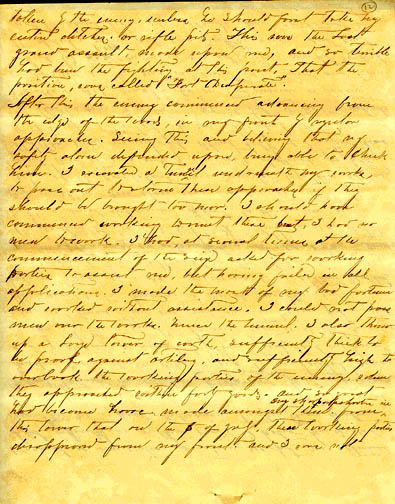 12
taken by the enemy, unless he should first take my
ditches, or rifle pits. This was the last
grand assault made upon me, and so terrible
had been the fighting at this point, that the
position was called "Fort Desperate".
After this the enemy commenced advancing from
the edge of the woods, in my front by regular
approaches. Seeing this and believing that my
safety alone depended upon being able to check
him. I excavated a tunnel underneath my works
to pass out to storm these approaches if they
should be brought too near. I should have
commenced working to meet them but, I had no
men to work. I had, at several times at the
commencement of the siege asked for working
parties to assist me, but having failed in all
applications I made the most of my bad fortune
and worked without assistance. I could not pass
men over the works. Hence the tunnel. I also threw
up a large tower of earth, sufficiently thick to
be proof against artillery, and sufficiently high to
overlook the working parties of the enemy, when
they approached within forty yards. and so great
had become havoc made amongst them from
my sharpshooters in
this tower that on the 5 of July, these working parties
disappeared from my front. and I was not